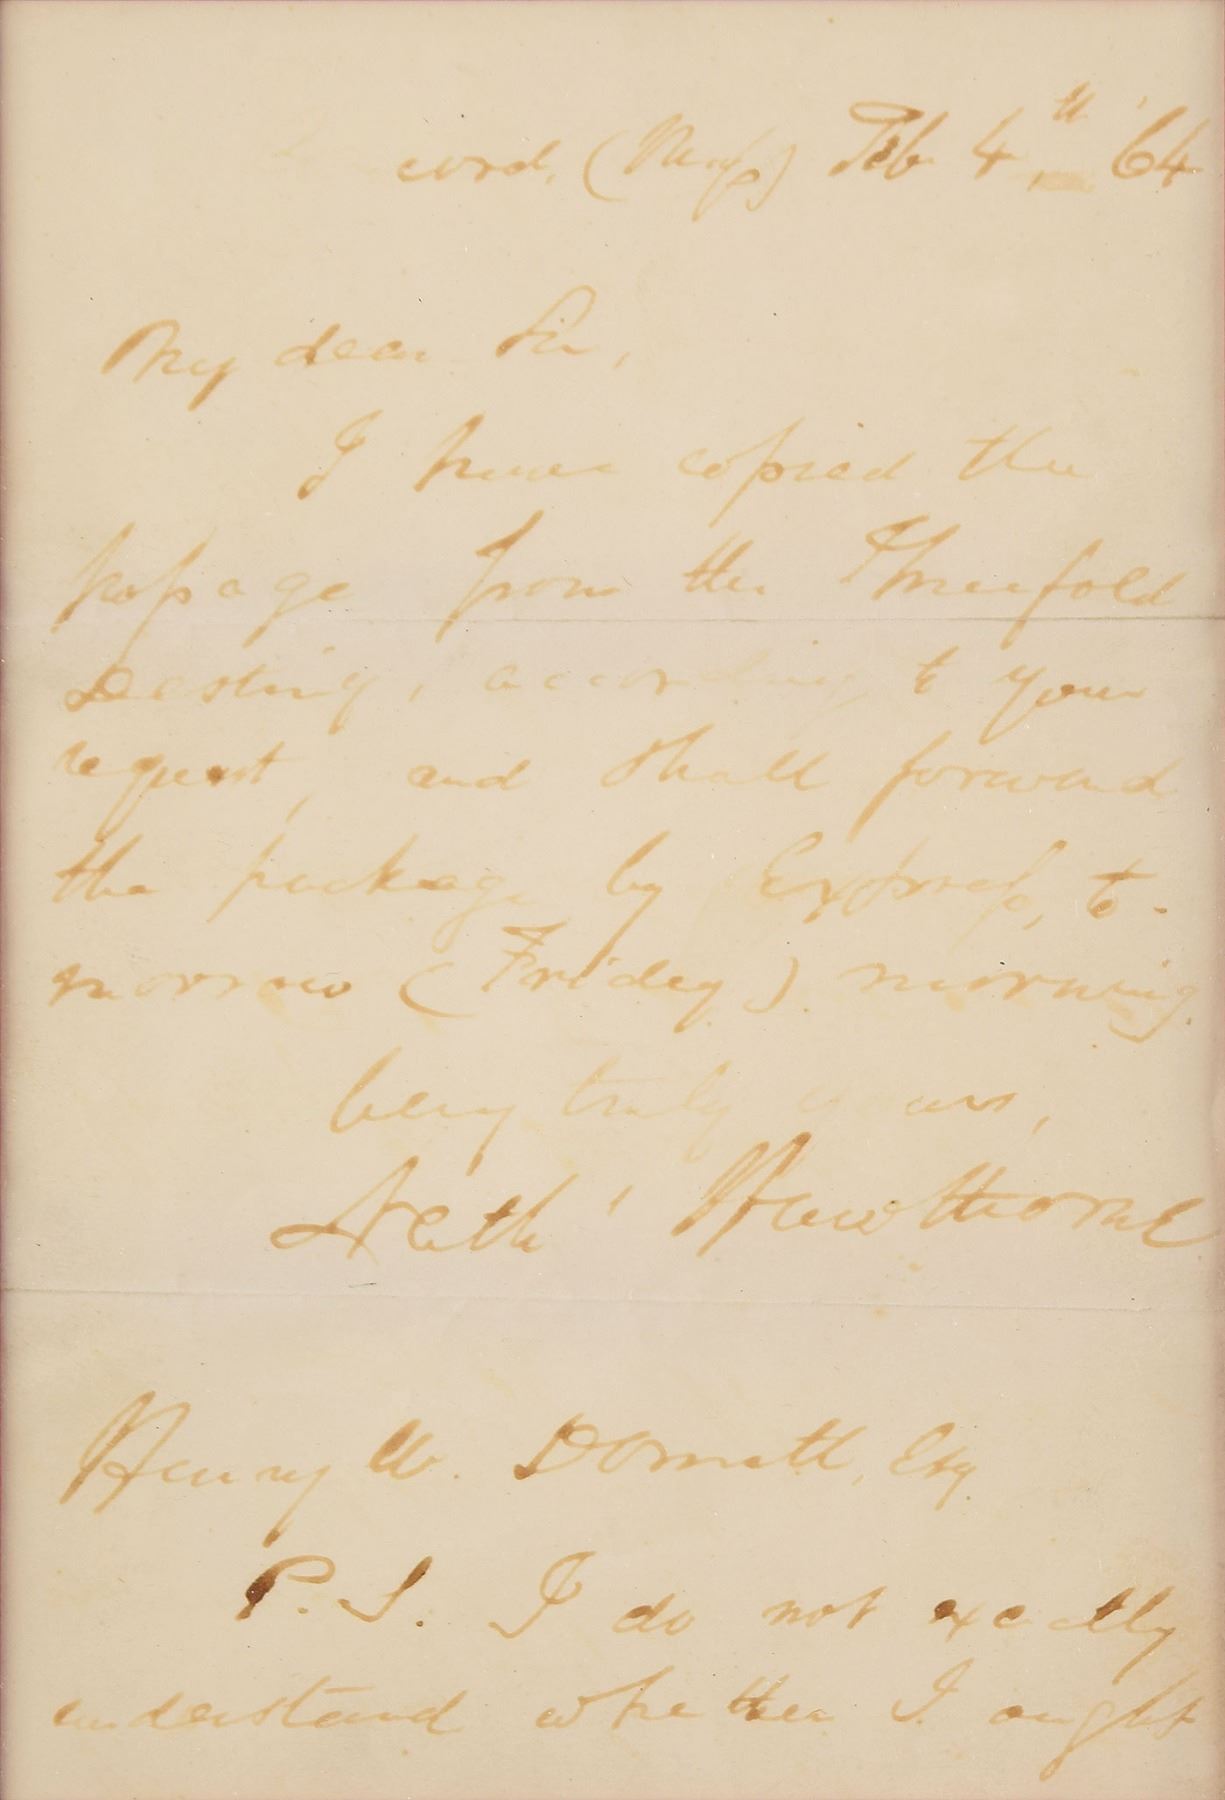 cord, (Mass) Feb 4,th '64
My dear Sir,
I have copied the
passage from the Threefold
Destiny, according to your
request, and shall forward
the package by Express, to-
morrow (Friday) morning.
Very truly yours,
Nath' Hawthorne
Henry W. Esq.
P.S. I do not exactly
understand whether I ought